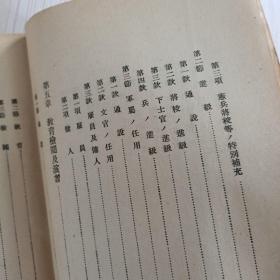 第三項 憲兵將校等ノ特別補充
第二節 進級
第一款 通說
第二款 將校ノ進級
第三款 下士官ノ進級
第四款 兵ノ進級
第三節 軍屬ノ任用
第一款 通說
第二款 文官ノ任用
第三款 雇員及傭人
第一項 雇員
第二項 傭人
第五章 敎育檢閱及演習